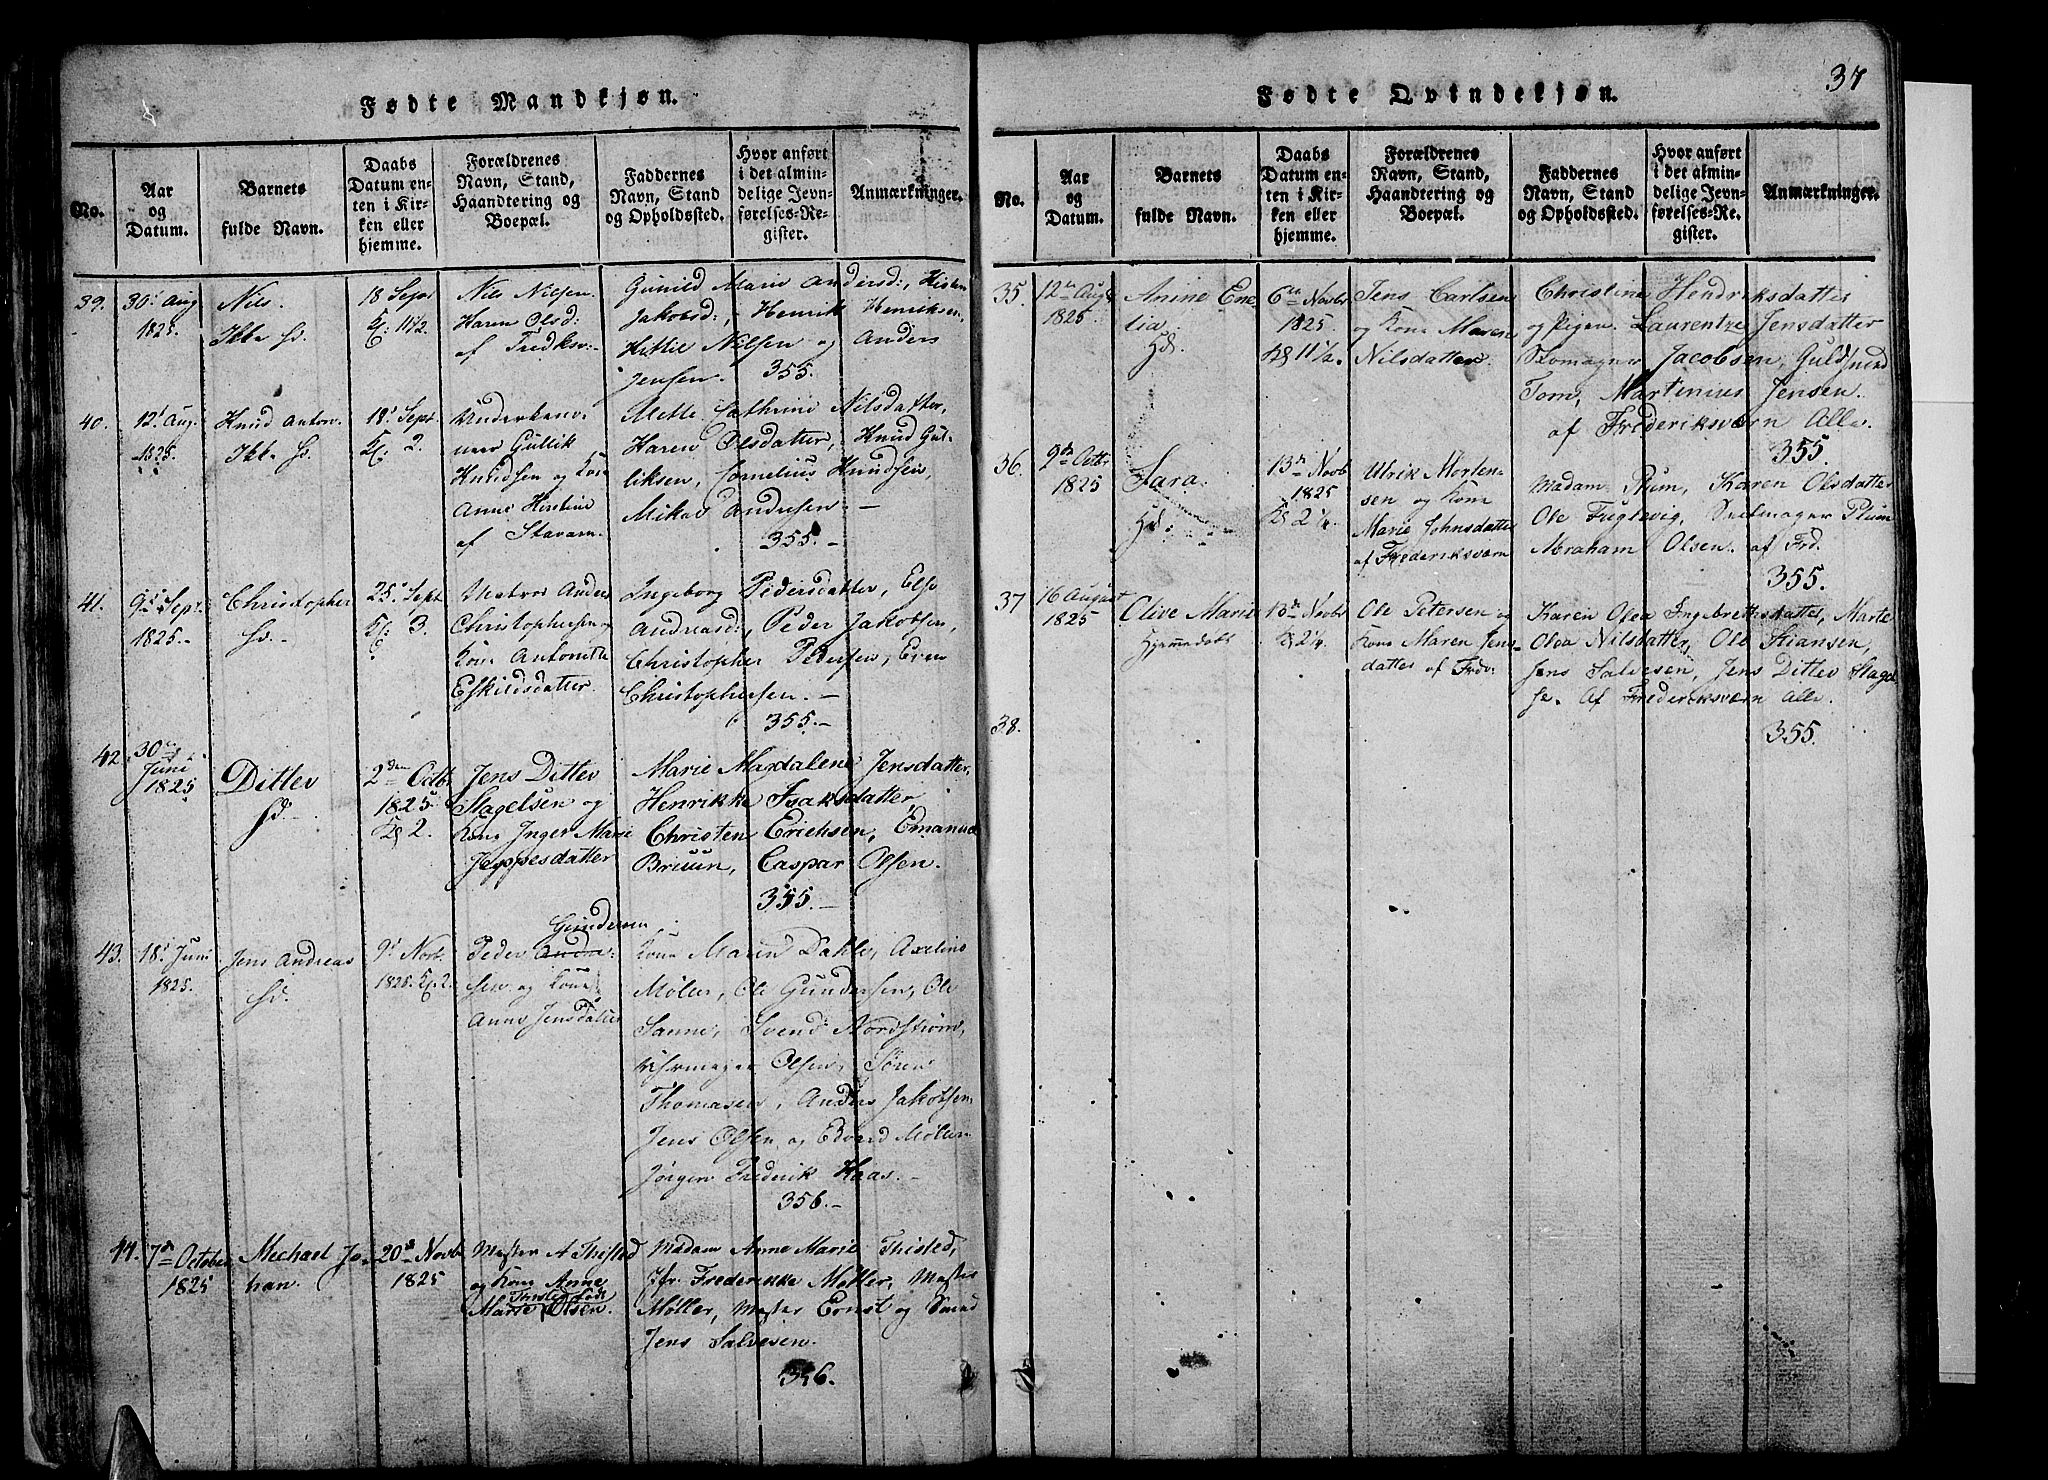 Fødte Mandkjøn.
No.
Aar
og
Datum.
Barnets
fulde Navn.
Daabs
Datum en-
ten i Kir-
ken eller
hjemme.
Forældrenes
Navn, Stand,
Haandtering og
Boepæl.
Faddernes
Navn, Stand
og Opholdssted.
Hvor anført
i det almin-
delige Jevn-
førelses-Re-
gister.
Anmærkninger.
39.
30' Aug
1825.
Nils.
Sd.
18 Sept
Kl. 11 1/2
Nils Nilsen.
Karen Olsd:
af Fredksv:
Gunild Marie Andersd:, Kisten
Jakobsd:, Henrik Henriksen,
Kittil Nilsen og Anders
Jensen. 355.
40.
12' Aug.
1825.
Knud Anton.
Sd.
18' Sept
Kl. 2.
Gullik
Knudsen og Kone
Anne Kistine
af Stavern.
Mette Cathrine Nilsdatter,
Karen Olsdatter, Knud Gul-
liksen, Cornelius Knudsen,
Mikael Andersen.
355.
41.
9' Sept.
1825.
Christopher
Sd.
25' Sept
Kl: 3.
Matros Anders
Christophersen og
Kone Antonette
Eskildsdatter.
Ingeborg Pedersdatter, Else
Andreasd:, Peder Jakobsen,
Christopher Pedersen, Even
Christophersen.
355.
42.
30te
Juni
1825
Ditlev
Sd.
2den Octb
1825.
Kl 2.
Jens Ditlev
Slagelsen og
Kone Inger Marie
Jeppesdatter
Marie Magdalene Jensdatter,
Henrikke Isaksdatter
Christen Erichsen, Emanuel
Bruun, Caspar Olsen.
355.
43.
18' Juni
1825.
Jens Andreas
Sd.
9' Novb.
1825. Kl. 2.
Gundersen
Peder Andre-
sen og Kone
Anne Jensdatter
Kone Maren Dahle, Axeline
Møller, Ole Gundersen, Ole
Sanne, Svend Nordstrøm,
Olsen, Søren
Thomasen, Anders Jakobsen
Jens Olsen og Edvard Møller
Jørgen Frederik Haas.
356.
44.
7de October
1825
Mechael Jo-
han.
20de Novb
1825
Mester A Thisted
og Kone Anne
Marie Thisted født Olsen.
Madam Anne Marie Thisted,
Jfr. Frederikke Møller, Mester
Møller, Mester Ernst og Smed
Jens Salvesen.
356.
37
Fødte Qvindekjøn.
No.
Aar
og
Datum.
Barnets
fulde Navn.
Daabs
Datum en-
ten i Kir-
ken eller
hjemme.
Forældrenes
Navn, Stand,
Haandtering og
Boepæl.
Faddernes
Navn, Stand
og Opholdssted.
Hvor anført
i det almin-
delige Jevn-
førelses-Re-
gister.
Anmærkninger.
35.
12te Aug
1825.
Anine Eme-
lia.
Hd.
6te Novbr
1825.
Kl 11 1/2.
Jens Carlsen
og Kone Maren
Nilsdatter.
Christine Hendriksdatter
og Pigen Laurentze Jensdatter
Skomager Jacobsen, Guldsmed
Tom, Martinius Jensen.
af Frederiksværn Alle.
355.
36.
9de Octb
1825
Sara.
Hd.
13de Novb
1825
Kl 2 1/4.
Ulrik Morten-
sen og Kone
Marie Johnsdatter
af Frederiksværn
Madam Plum, Karen Olsdatter
Ole Fuglevig, Seilmager Plum
Abraham Olsen. af Frd.
355.
37
16 August
1825
Olive Marie
Hjemmedøbt
13de Novbr
Kl 2 1/4.
Ole Petersen og
Kone Maren Jens-
datter af Frdv.
Karen Olea Ingebrettsdatter, Marte
Olea Nilsdatter, Ole Stiansen,
Jens Salvesen, Jens Ditlev Slagel
se. Af Frederiksværn Alle.
355.
38.